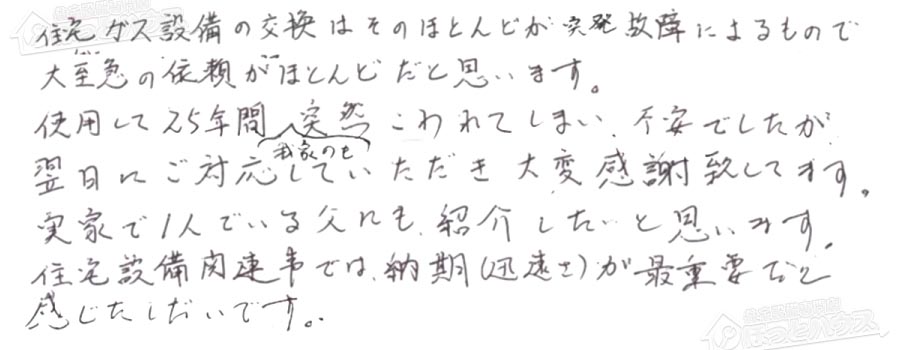 住宅ガス設備の交換はそのほとんどが突発故障によるもので
大至急の依頼がほとんどだと思います。
使用して25年間 我家のも 突然こわれてしまい、不安でしたが
翌日にご対応していただき大変感謝致してます。
実家で1人でいる父にも、紹介したいと思います。
住宅設備関連事では、納期(迅速さ)が最重要だと
感じたしだいです。